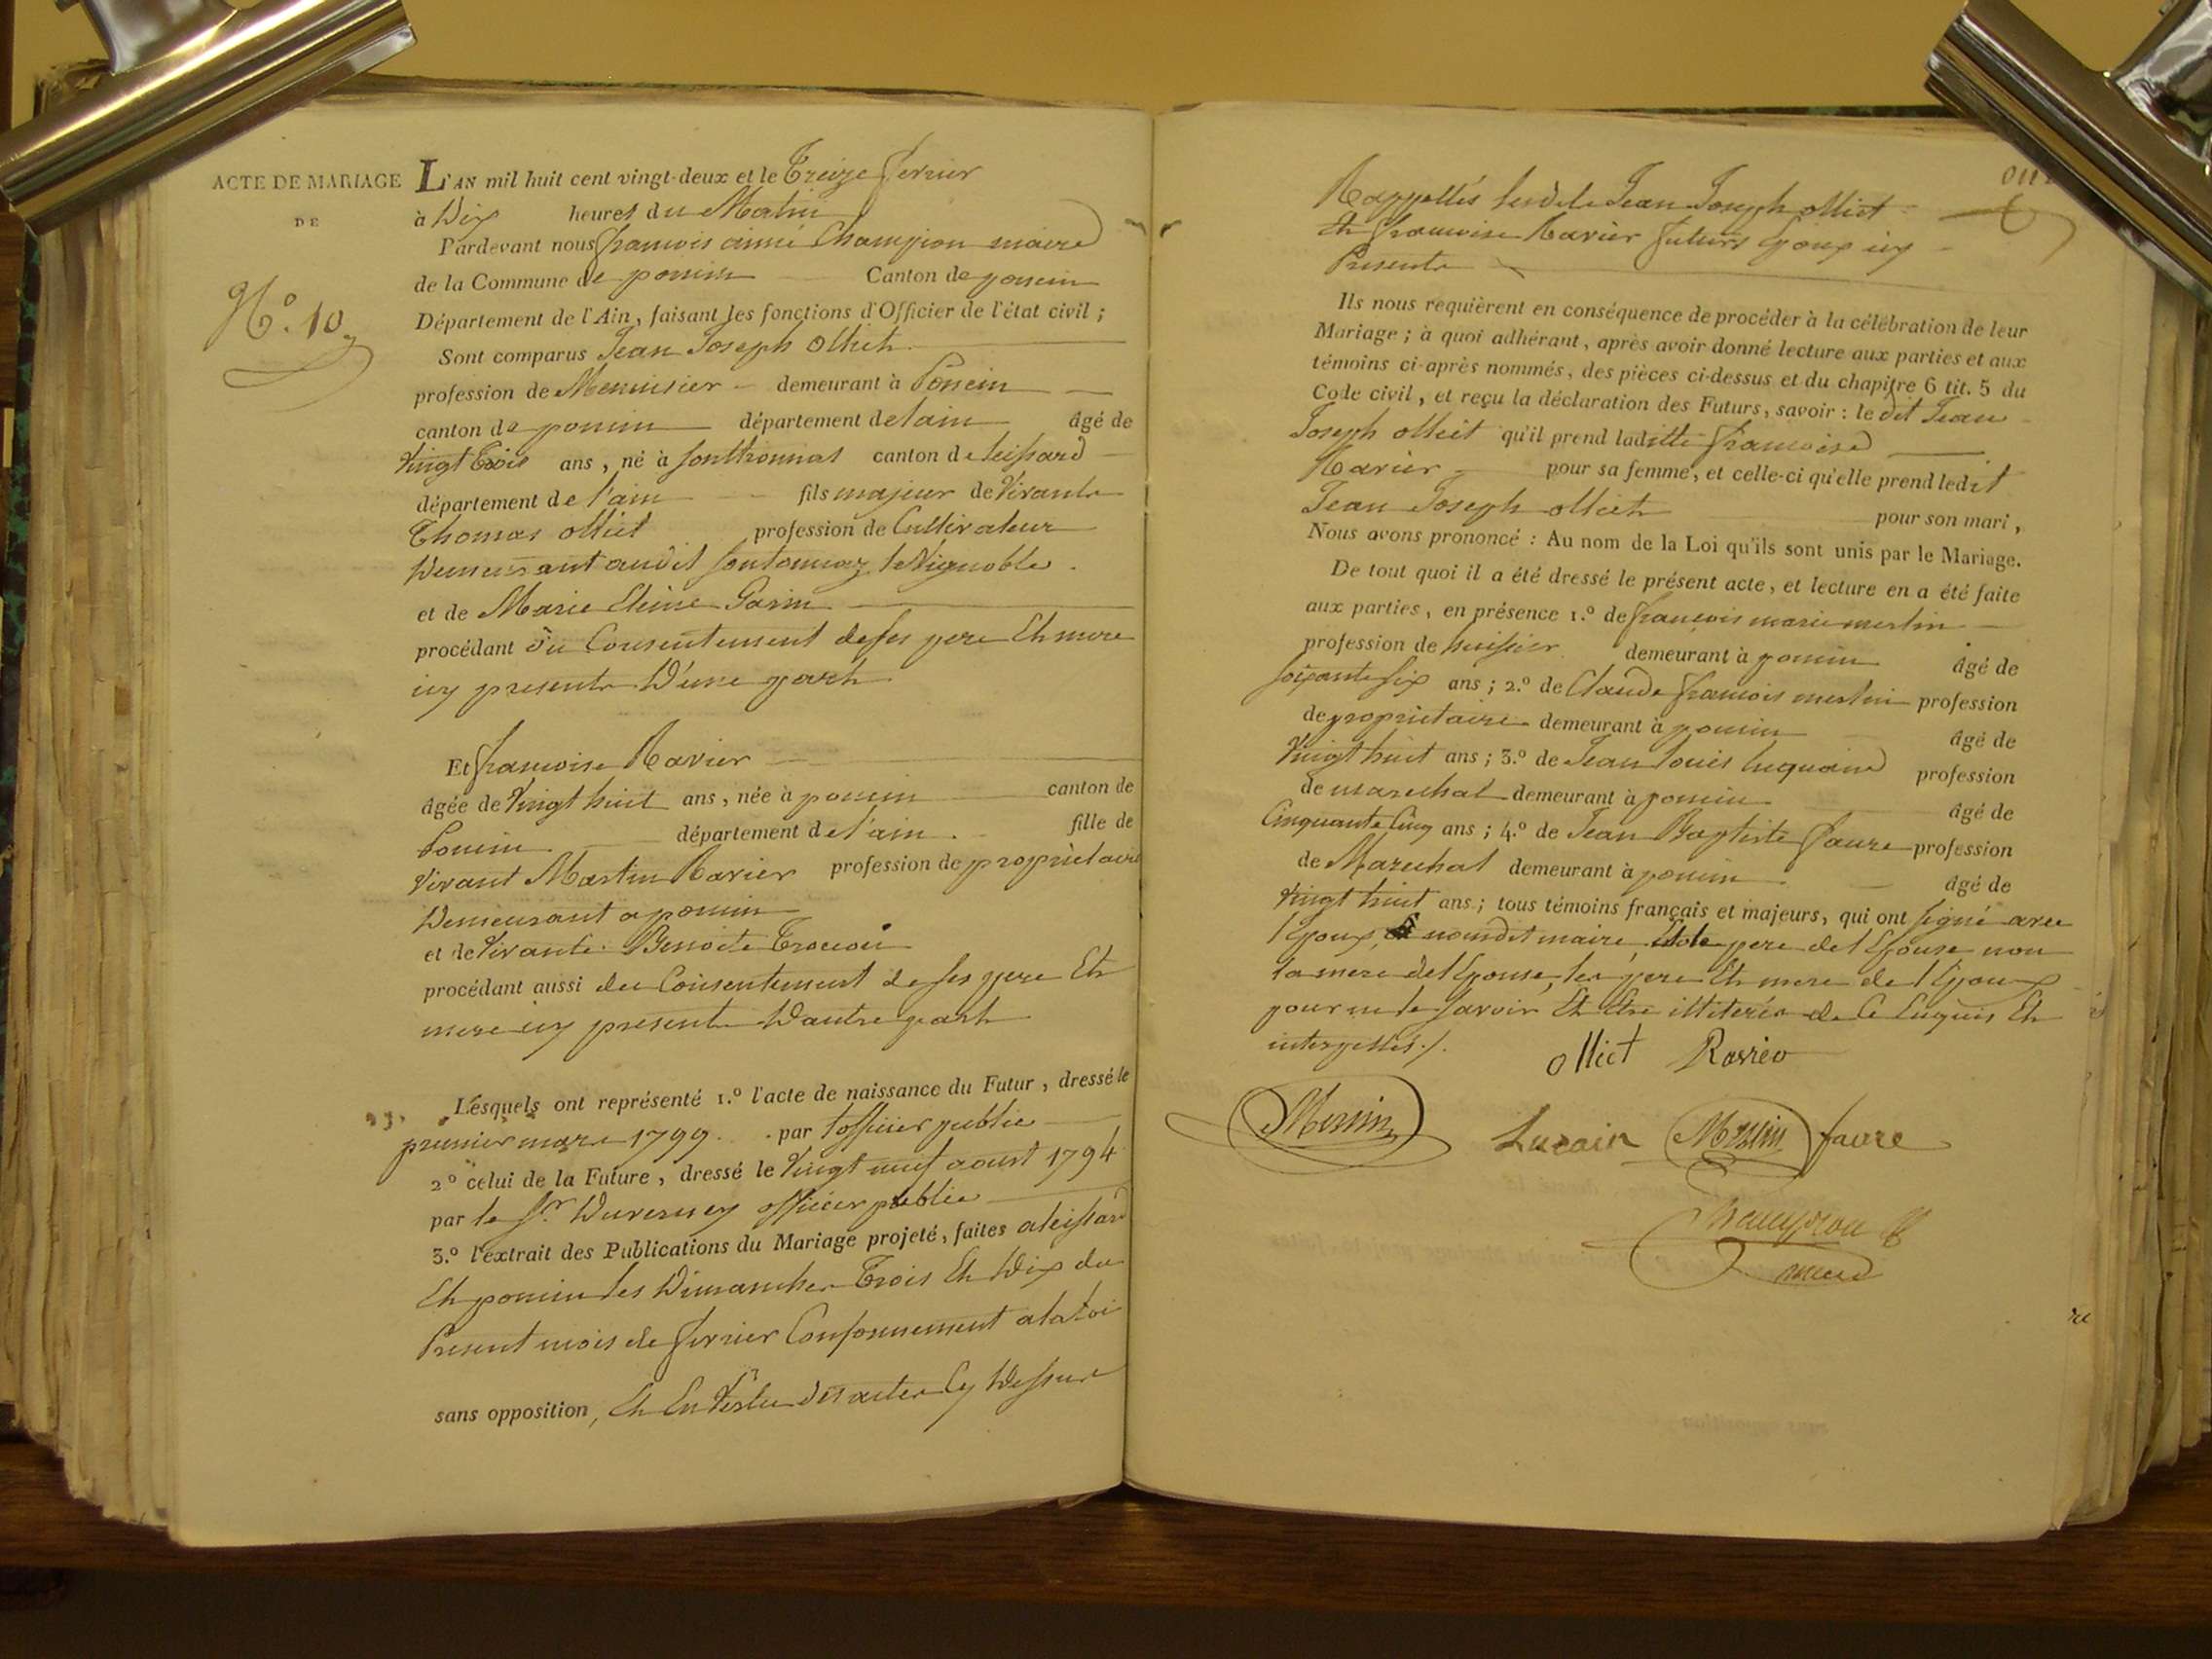 ACTE DE MARIAGE
DE
N.° 10
L'AN mil huit cent vingt-deux et le Treize fevrier
à Dix heures du Matin
Pardevant nous francois aimé Champion maire
de la Commune de poncin Canton de poncin
Département de l'Ain, faisant les fonctions d'Officier de l'état civil ;
Sont comparus Jean Joseph Olliet
profession de Menuisier demeurant à Poncin
canton de poncin département de lain âgé de
vingt trois ans, né à fonthonnas canton de leissard
département de l'ain fils majeur de vivants
Thomas olliet profession de Cultivateur
Demeurant audit le vignoble
et de Marie Garin
procédant du Consentement de ses pere Et mere
icy presents D'une part
Et francoise Ravier
âgée de vingt huit ans, née à poncin canton de
Poncin département de l'ain fille de
vivant Martin Ravier profession de propriétaire
Demeurant a poncin
et de vivante Benoite
procédant aussi du Consentement de ses pere Et
mere icy presents D'autre part
Lesquels ont représenté 1.° l'acte de naissance du Futur, dressé le
premier mars 1799. par lofficier public
2° celui de la Future, dressé le vingt neuf aoust 1794
par le Sr. officier public
3.° l'extrait des Publications du Mariage projeté, faites a leissard
Et poncin les Dimanches Trois Et Dix du
Present mois de fevrier Conformement a la Loi
sans opposition, Et En vertu des actes Cy Dessus
Rappellés lesdits Jean Joseph olliet
Et francoise Ravier futurs Epoux icy
Presents
Ils nous requièrent en conséquence de procéder à la célébration de leur
Mariage ; à quoi adhérant, après avoir donné lecture aux parties et aux
témoins ci-après nommés, des pièces ci-dessus et du chapitre 6 tit. 5 du
Code civil, et reçu la déclaration des Futurs, savoir : le dit Jean
Joseph olliet qu'il prend laditte francoise
Ravier pour sa femme, et celle-ci qu'elle prend ledit
Jean Joseph olliet pour son mari,
Nous avons prononcé : Au nom de la Loi qu'ils sont unis par le Mariage.
De tout quoi il a été dressé le présent acte, et lecture en a été faite
aux parties, en présence 1.° de francois marie merlin
profession de huissier demeurant à poncin âgé de
soixante six ans ; 2.° de Claude francois merlin profession
de proprietaire demeurant à poncin âgé de
vingt huit ans ; 3.° de Jean louis profession
de marechal demeurant à poncin âgé de
Cinquante Cinq ans ; 4.° de Jean Baptiste faure profession
de Marechal demeurant à poncin âgé de
vingt huit ans ; tous témoins français et majeurs, qui ont signé avec
l'Epoux, nousdit maire, Et le pere de l'Epouse non
la mere de l'Epouse, les pere Et mere de l'Epoux
pour ne le savoir Et Etre illiterés de Ce Enquis Et
interpellés ./.
olliet Ravier
Merlin Lucain Merlin faure
Champion
maire